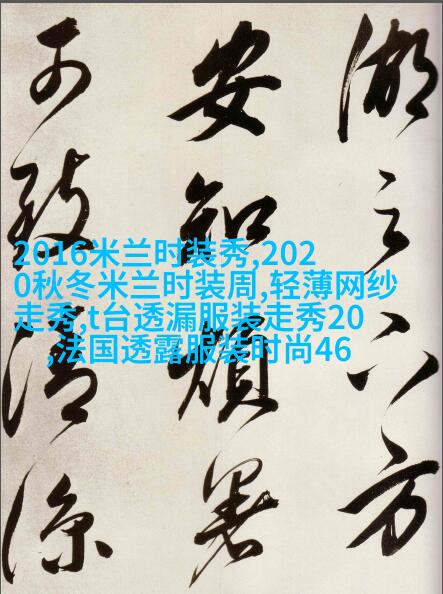 湖之方
安知煩暑
可致清涼
2016米兰时装秀,202
0秋冬米兰时装周,轻薄网纱
走秀,t台透漏服装走秀20
,法国透露服装时尚46